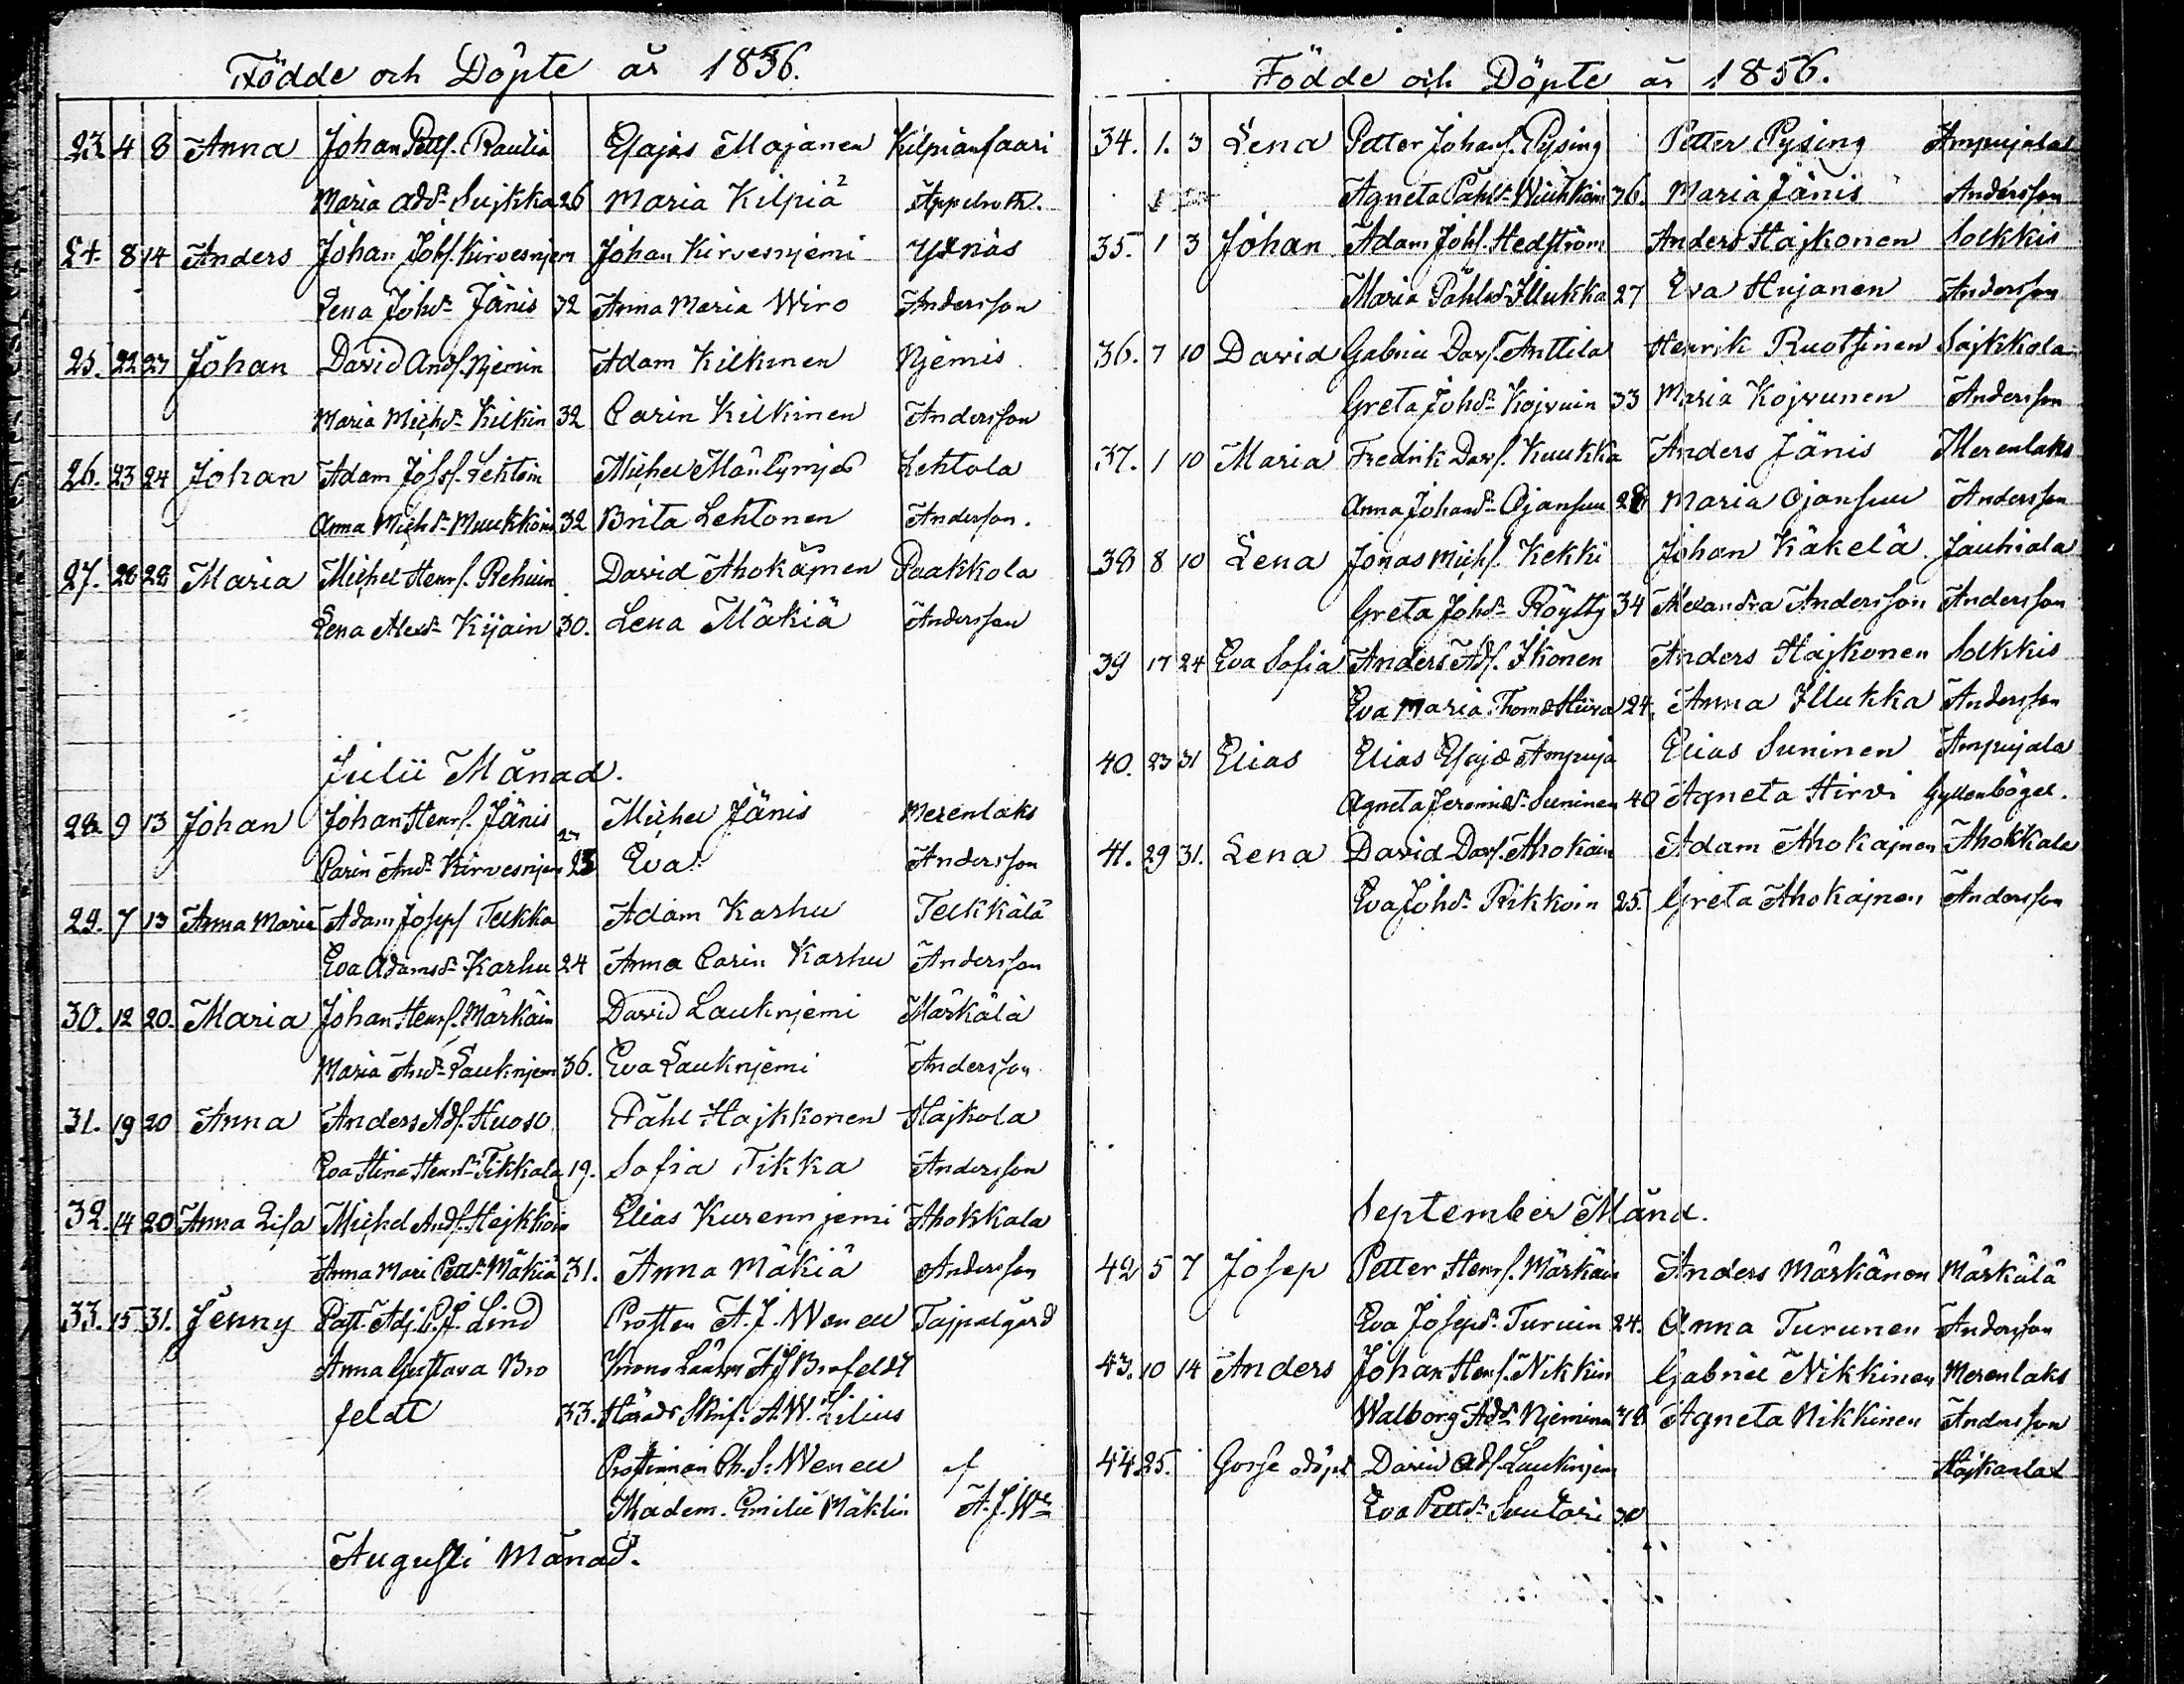 Födde och Döpte år 1856.
23. 4 8 Anna Johan Pettf. Raulia Esajas Majanen Kilpiänsaari
Maria Add:r Sujkka 26 Maria Kilpiä Appelroth.
24. 8 14 Anders Johan Johf. Kirvesnjem Johan Kirvesnjemi Yxnäs
Lena Johd:r Jänis 32 Anna Maria Wiro Andersson
25. 22 27 Johan David Andf. Njemin Adam Kilkinen Njemis
Maria Michd:r Kilkin 32 Carin Kilkinen Andersson
26. 23 24 Johan Adam Johf. Lehtoin Michel Mäntymjes Lehtola
Anna Michd:r Muukkoin 32 Brita Lehtonen Andersson.
27. 28 28 Maria Michel Henrf. Rehuin David Ahokajnen Paakkola
Lena Alexd:r Kijain 30. Lena Mäkiä Andersson
Julii Månad.
28. 9 13 Johan Johan Henrf. Jänis Michel Jänis Merenlaks
Carin And:r Kirvesnjem 23 Eva Andersson
29. 7 13 Anna Maria Adam Josepf. Teikka Adam Karhu Teikkälä
Eva Adamsd:r Karhu 24 Anna Carin Karhu Andersson
30. 12 20. Maria Johan Henrf. Märkäin David Lauknjemi Märkälä
Maria And:r Lauknjem 36. Eva Lauknjemi Andersson
31. 19 20 Anna Anders Adf. Huoso Påhl Hajkkonen Hajkola
Eva Stina Henrd:r Tikkala 19. Sofia Tikka Andersson
32. 14 20 Anna Lisa Michel Andf. Hejkkoin Elias Kurennjemi Ahokkala
Anna Mari Pettd:r Mäkiä 31. Anna Mäkiä Andersson
33. 15 31. Jenny Past. Adj. C. J. Lind Prosten A. J. Wenell Tajpalgård
Anna Gustava Bro Krono Länsm A J Brofeldt
feldt 33. Härads Skrif. A. W. Lilius
Prostinnan Ch. S. Wenell af
Madem. Emilie Mäklin A. J. W:ll
Augusti Månad.
Födde och Döpte år 1856.
34. 1. 3 Lena Petter Johanf. Pysing Petter Pysing Ampujala
Agneta Påhlsd:r Wiukkain 36. Maria Jänis Andersson
35. 1 3 Johan Adam Johf. Hedström Anders Hajkonen Sockkis
Maria Påhlsd:r Illukka 27 Eva Hujanen Andersson
36. 7 10 David Gabriel Davf. Anttila Henrik Ruotsinen Sajkkola
Greta Johd:r Kojvuin 33 Maria Kojvunen Andersson
37. 1 10 Maria Fredrik Davf. Kuukka Anders Jänis Merenlaks
Anna Johand:r Ojansuu 28 Maria Ojansuu Andersson
38 8 10 Lena Jonas Michf. Kekki Johan Käkelä Jauhiala
Greta Johd:r Röytty 34 Alexandra Andersson Andersson
39 17 24 Eva Sofia Anders Adf. Ikonen Anders Hajkonen Sockkis
Eva Maria Thomd Hiiva 24. Anna Illukka Andersson
40. 23 31 Elias Elias Esajd Ampuja Elias Suninen Ampujala
Agneta Jeremiæd:r Suninen 40 Agneta Hirvi Gyllenbögel.
41. 29 31. Lena David Davf. Ahokain Adam Ahokajnen Ahokkala
Eva Johd:r Rikkoin 25. Greta Ahokajnen Andersson
September Månd.
42 5 7 Josep Petter Henrf. Märkäin Anders Märkänen Märkälä
Eva Josepd:r Turuin 24. Anna Turunen Andersson
43. 10 14 Anders Johan Henrf. Nikkin Gabriel Nikkinen Merenlaks
Walborg Add:r Njeminen 38 Agneta Nikkinen Andersson
44. 25. Gosse odöpt David Adf. Lauknjem Hajkanlax
Eva Pettd:r Suutari 30